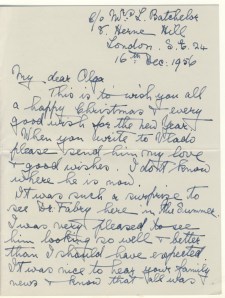 c/o Mrs L. Batchelor
8. Herne Hill
London. S.E. 24
16th Dec. 1956
My dear Olga
This is to wish you all
a happy Christmas & every
good wish for the new Year.
When you write to Vlado
please send him my love
& good wishes. I don't know
where he is now.
It was such a surprise to
see Dr Fabry here in the Summer.
I was very pleased to see
him looking so well & better
than I should have expected.
It was nice to hear your family
news & know that all was